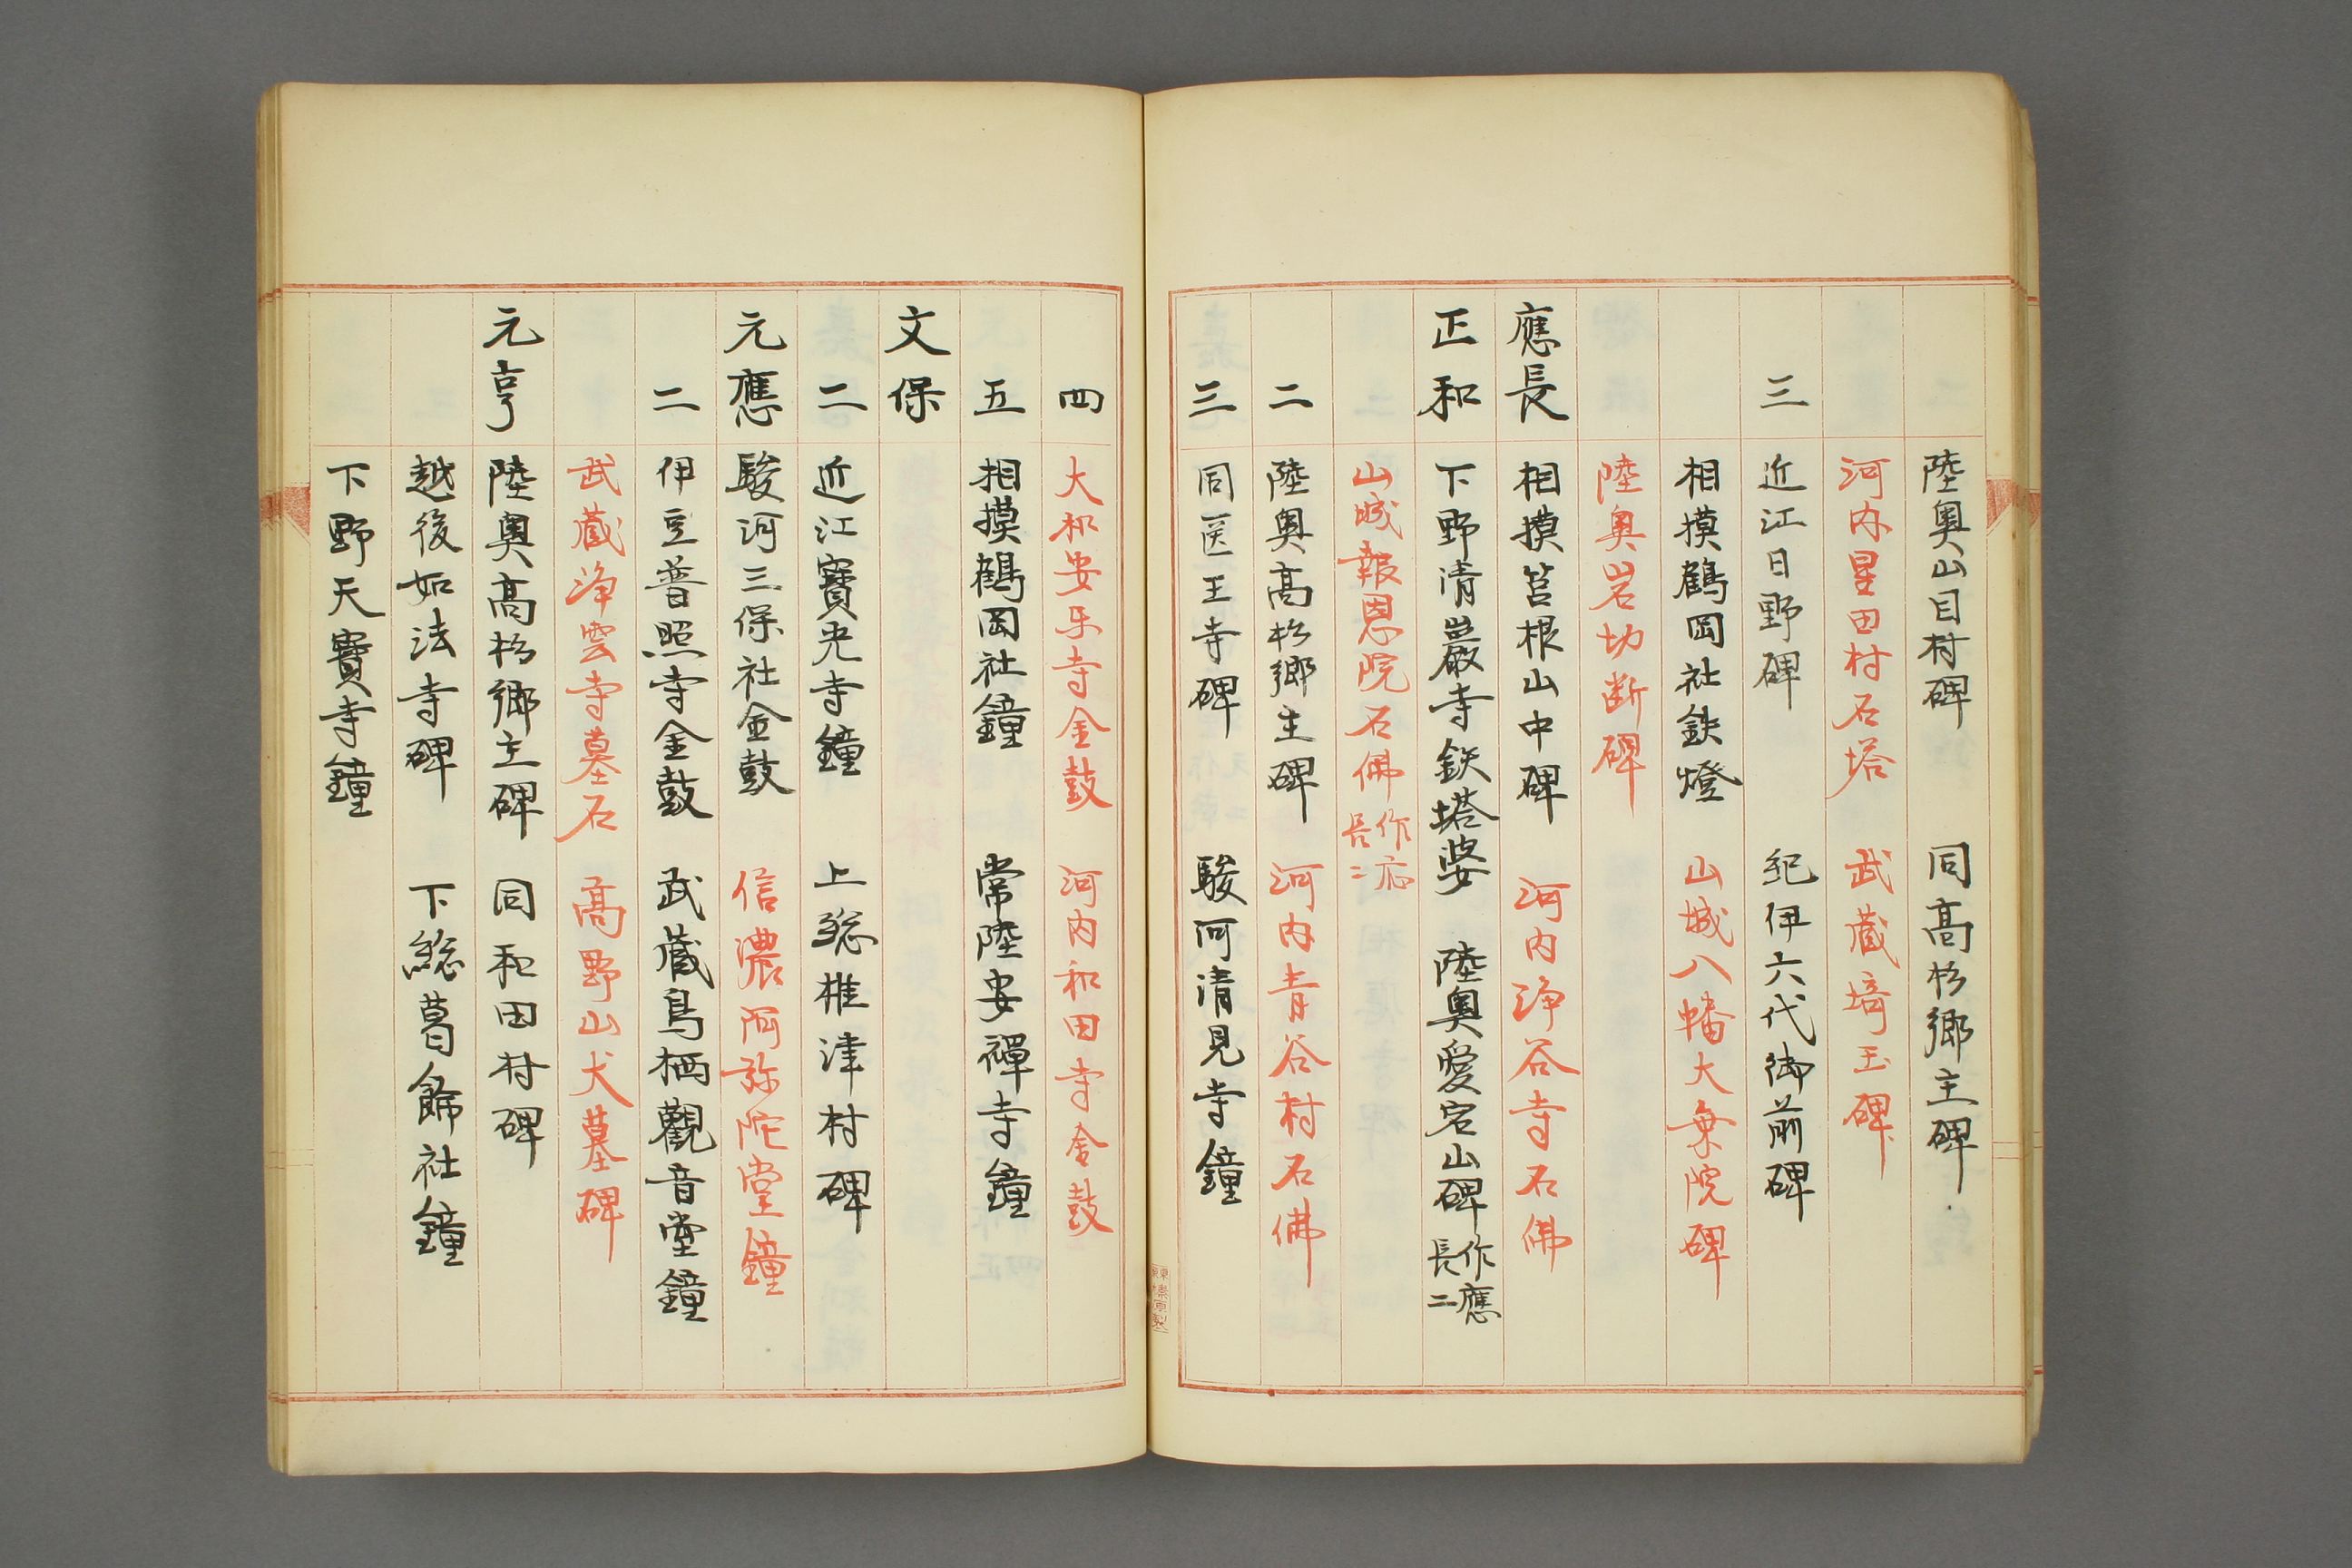 陸奥山目村碑　同高杉郷主碑
河内星田村石塔　武蔵埼玉碑
三　近江日野碑　紀伊六代御前碑
相摸鶴岡社鉄燈　山城八幡大乗院碑
陸奥岩切断碑
應長　相摸筥根山中碑　河内浄谷寺石佛
正和　下野清巌寺鉄塔婆　陸奥愛宕山碑 作應長二
山城報恩院石佛 作応長二
二　陸奥高杉郷主碑　河内青谷村石佛
三　同医王寺碑　駿河清見寺鐘
四　大和安楽寺金鼓　河内和田寺金鼓
五　相摸鶴岡社鐘　常陸安禅寺鐘
文保
二　近江寳光寺鐘　上総椎津村碑
元應　駿河三保社金鼓　信濃阿弥陀堂鐘
二　伊豆普照寺金鼓　武蔵鳥栖觀音堂鐘
武蔵浄雲寺墓石　高野山犬墓碑
元亨　陸奥高杉郷主碑　同和田村碑
越後如法寺碑　下総葛餝社鐘
下野天寳寺鐘